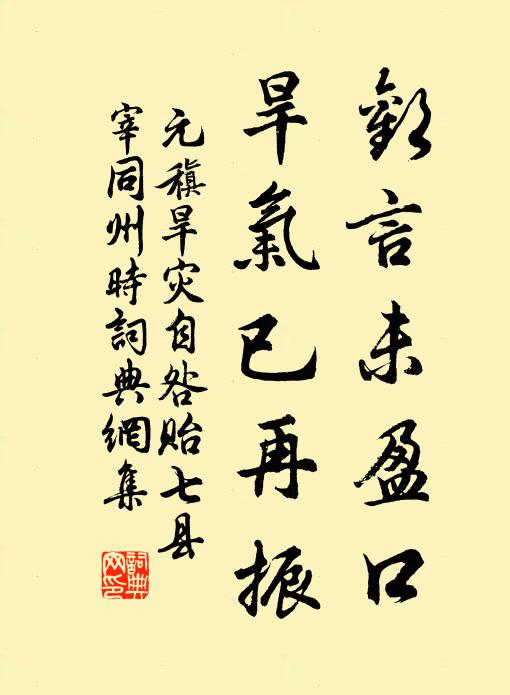 歡言未盈口
旱氣已再振
元稹旱灾自咎貽七县
宰同州時詞典網集
詞典
网印